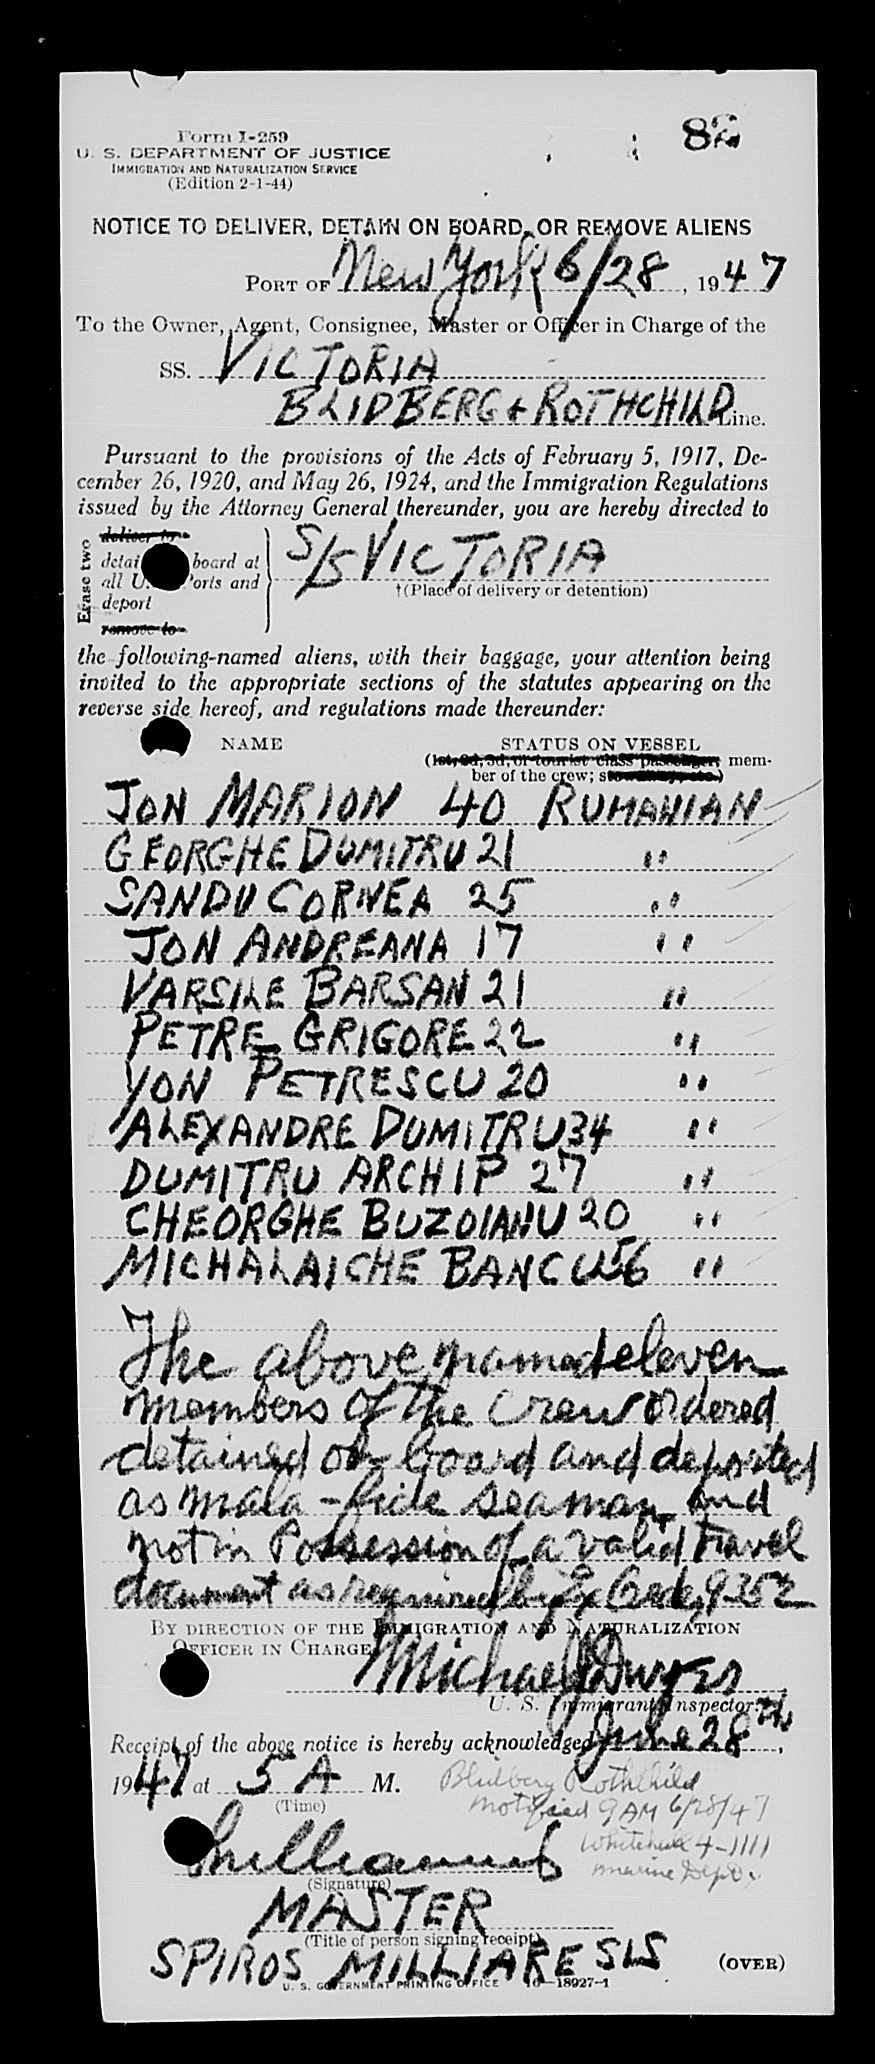 82
Form I-259
U. S. DEPARTMENT OF JUSTICE
IMMIGRATION AND NATURALIZATION SERVICE
(Edition 2-1-44)
NOTICE TO DELIVER, DETAIN ON BOARD, OR REMOVE ALIENS
PORT OF New York 6/28, 1947
To the Owner, Agent, Consignee, Master or Officer in Charge of the
SS. VICTORIA
BLIDBERG + ROTHCHILD Line.
Pursuant to the provisions of the Acts of February 5, 1917, De-
cember 26, 1920, and May 26, 1924, and the Immigration Regulations
issued by the Attorney General thereunder, you are hereby directed to
Erase two
deliver to
board at
all U. Ports and
deport
remove to
S/S VICTORIA
†(Place of delivery or detention)
the following-named aliens, with their baggage, your attention being
invited to the appropriate sections of the statutes appearing on the
reverse side hereof, and regulations made thereunder:
NAME STATUS ON VESSEL
(1st, 2d, 3d, or tourist class passenger; mem-
ber of the crew; stowaway, etc.)
JON MARION 40 RUMANIAN
GEORGHE DUMITRU 21 "
SANDU CORNEA 25 "
JON ANDREANA 17 "
VARSILE BARSAN 21 "
PETRE GRIGORE 22 "
YON PETRESCU 20 "
ALEXANDRE DUMITRU 34 "
DUMITRU ARCHIP 27 "
CHEORGHE BUZOIANU 20 "
MICHALAICHE BANCU 56 "
The above named eleven
members of the Crew ordered
detained on board and deported
as mala-fide seaman and
not in Possession of a valid travel
document as required by Ex Order 9352
BY DIRECTION OF THE IMMIGRATION AND NATURALIZATION
OFFICER IN CHARGE
Michael J Dwyer
U. S. Immigrant Inspector.
Receipt of the above notice is hereby acknowledged June 28th,
1947 at 5 A M.
(Time)
Blidberg Rothchild
notified 9 AM 6/28/47
Whitehall 4-1111
marine Dept.
(Signature)
MASTER
(Title of person signing receipt)
SPIROS MILLIARESIS
(OVER)
U. S. GOVERNMENT PRINTING OFFICE 16—18927-1